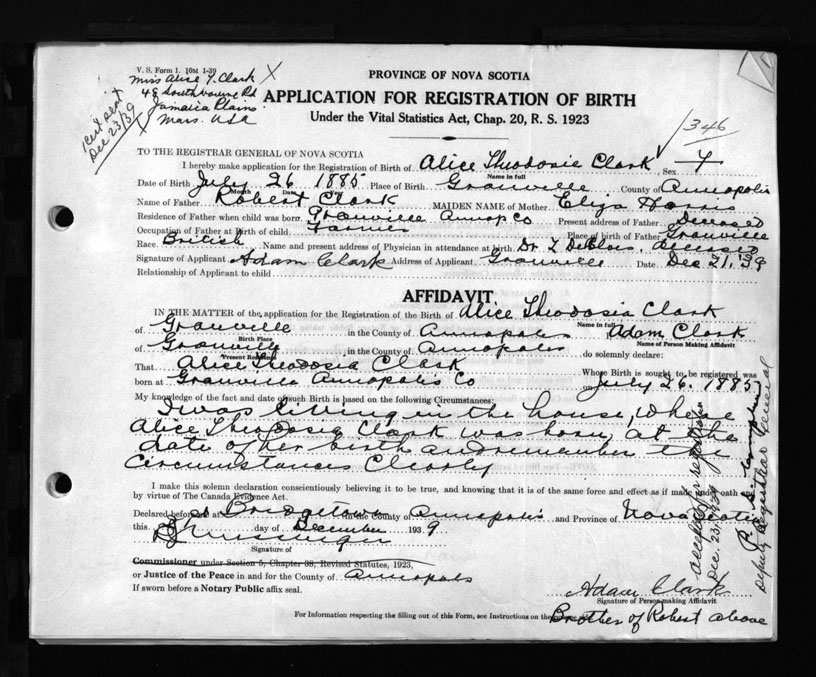 V. S. Form 1. 10M 1-39
Miss Alice T. Clark X
48 Southbourne Rd
Jamaica Plains
Mass. USA
Cert. sent
Dec 23/39
PROVINCE OF NOVA SCOTIA
APPLICATION FOR REGISTRATION OF BIRTH
Under the Vital Statistics Act, Chap. 20, R. S. 1923
346
TO THE REGISTRAR GENERAL OF NOVA SCOTIA
I hereby make application for the Registration of Birth of Alice Theodosie Clark Sex F
Name in full
Date of Birth July 26 1885 Place of Birth Granville County of Annapolis
Month Date Year
Name of Father Robert Clark MAIDEN NAME of Mother Eliza Harris
Residence of Father when child was born Granville Annap Co Present address of Father Deceased
Occupation of Father at Birth of child Farmer Place of birth of Father Granville
Race British Name and present address of Physician in attendance at birth Dr. L DeBlois. deceased
Signature of Applicant Adam Clark Address of Applicant Granville Date Dec 21, 39
Relationship of Applicant to child
AFFIDAVIT
IN THE MATTER of the application for the Registration of the Birth of Alice Theodosia Clark
Name in full
of Granville in the County of Annapolis Adam Clark
Birth Place Name of Person Making Affidavit
of Granville in the County of Annapolis do solemnly declare:
Present Residence
That Alice Theodosia Clark Whose Birth is sought to be registered was
born at Granville Annapolis Co on July 26. 1885
My knowledge of the fact and date of such Birth is based on the following Circumstances:
I was living in the house, where
Alice Theodosia Clark was born, at the
date of her birth and remember the
circumstances Clearly
I make this solemn declaration conscientiously believing it to be true, and knowing that it is of the same force and effect as if made under oath and
by virtue of The Canada Evidence Act.
Declared before me at Bridgetown in the County of Annapolis and Province of Nova Scotia
this day of December 1939
Signature of
Commissioner under Section 5, Chapter 38, Revised Statutes, 1923,
or Justice of the Peace in and for the County of Annapolis
If sworn before a Notary Public affix seal.
Adam Clark
Signature of Person making Affidavit
For Information respecting the filling out of this Form, see Instructions on the
Brother of Robert above
Accepted for registration
Dec. 23, 1939
Deputy Registrar General